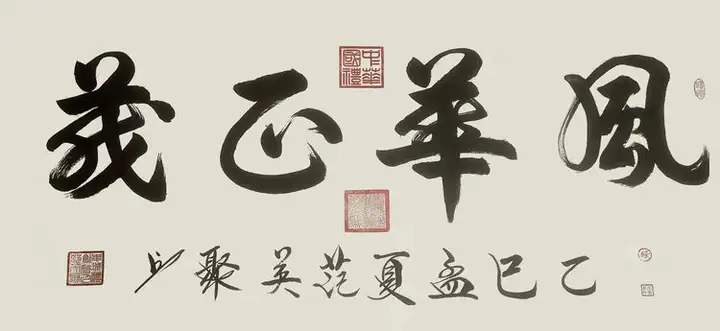 風華正茂
中華國禮
乙巳孟夏范英聚书